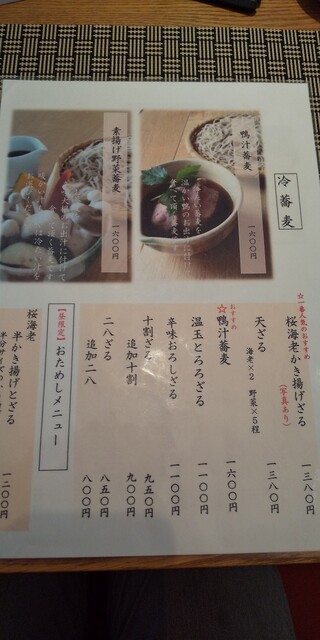 冷蕎麦
鴨汁蕎麦
一六〇〇円
素揚げ野菜蕎麦
一六〇〇円
☆一番人気のおすすめ
桜海老かき揚げざる
(写真あり)
一三八〇円
天ざる
海老×2 野菜×5程
一三八〇円
おすすめ
☆鴨汁蕎麦
一六〇〇円
温玉とろろざる
一一〇〇円
辛味おろしざる
一一〇〇円
十割ざる
九五〇円
追加十割
九〇〇円
二八ざる
八五〇円
追加二八
八〇〇円
【昼限定】おためしメニュー
桜海老
半かき揚げとざる
一二〇〇円